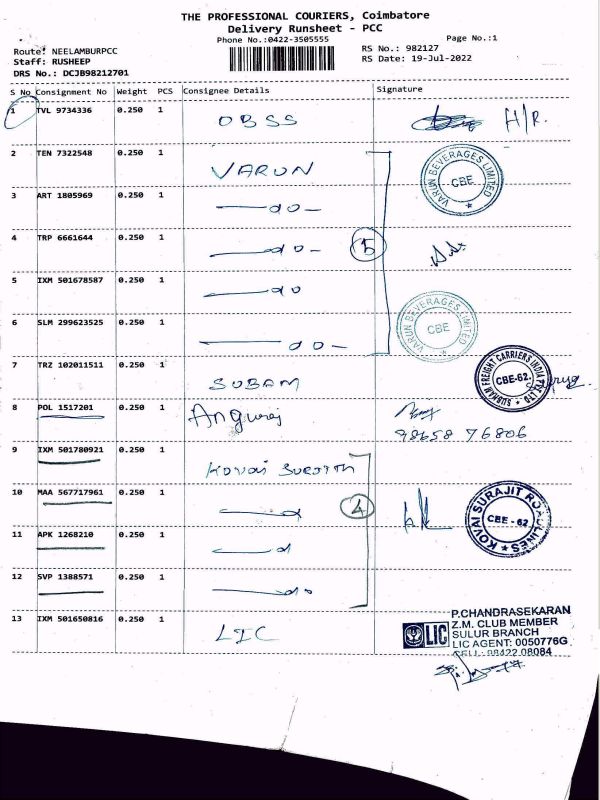 THE PROFESSIONAL COURIERS, Coimbatore
Delivery Runsheet - PCC
Phone No.:0422-3505555
Page No.:1
Route: NEELAMBURPCC
RS No.: 982127
Staff: RUSHEEP
RS Date: 19-Jul-2022
DRS No.: DCJB98212701
S No Consignment No Weight PCS Consignee Details Signature
1 TVL 9734336 0.250 1 OBSS H/R.
2 TEN 7322548 0.250 1 VARUN
VARUN BEVERAGES LIMITED CBE
3 ART 1805969 0.250 1 — do —
4 TRP 6661644 0.250 1 — do — 5
5 IXM 501678587 0.250 1 — do
6 SLM 299623525 0.250 1 — do —
VARUN BEVERAGES LIMITED CBE
7 TRZ 102011511 0.250 1 SUBAM
FREIGHT CARRIERS INDIA PVT LTD CBE-62.
8 POL 1517201 0.250 1 Anguraj
98658 76806
9 IXM 501780921 0.250 1 KOVAI
10 MAA 567717961 0.250 1 — d 4
KOVAI SURAJIT ROADLINES CBE - 62
11 APK 1268210 0.250 1 — d
12 SVP 1388571 0.250 1 — do
13 IXM 501650816 0.250 1 LIC
P.CHANDRASEKARAN
Z.M. CLUB MEMBER
LIC SULUR BRANCH
LIC AGENT: 0050776G
CELL: 98422 08084